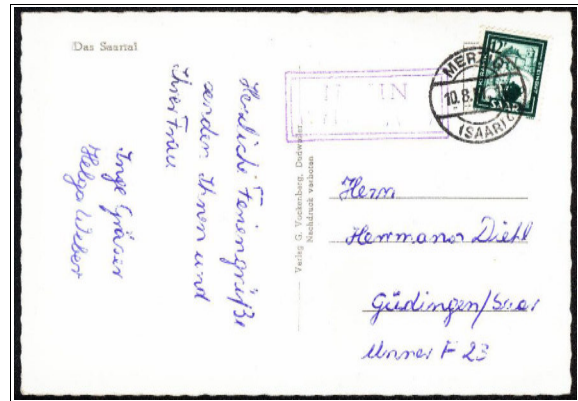 Das Saartal
Herzliche Feriengrüße
senden Ihnen und
Ihrer Frau
Inge Gräser
Helga Weber
Verlag G. Vockenberg, Dudweiler
Nachdruck verboten
MERZIG
10.8.
(SAAR)
Herrn
Hermann Diehl
Güdingen/Saar